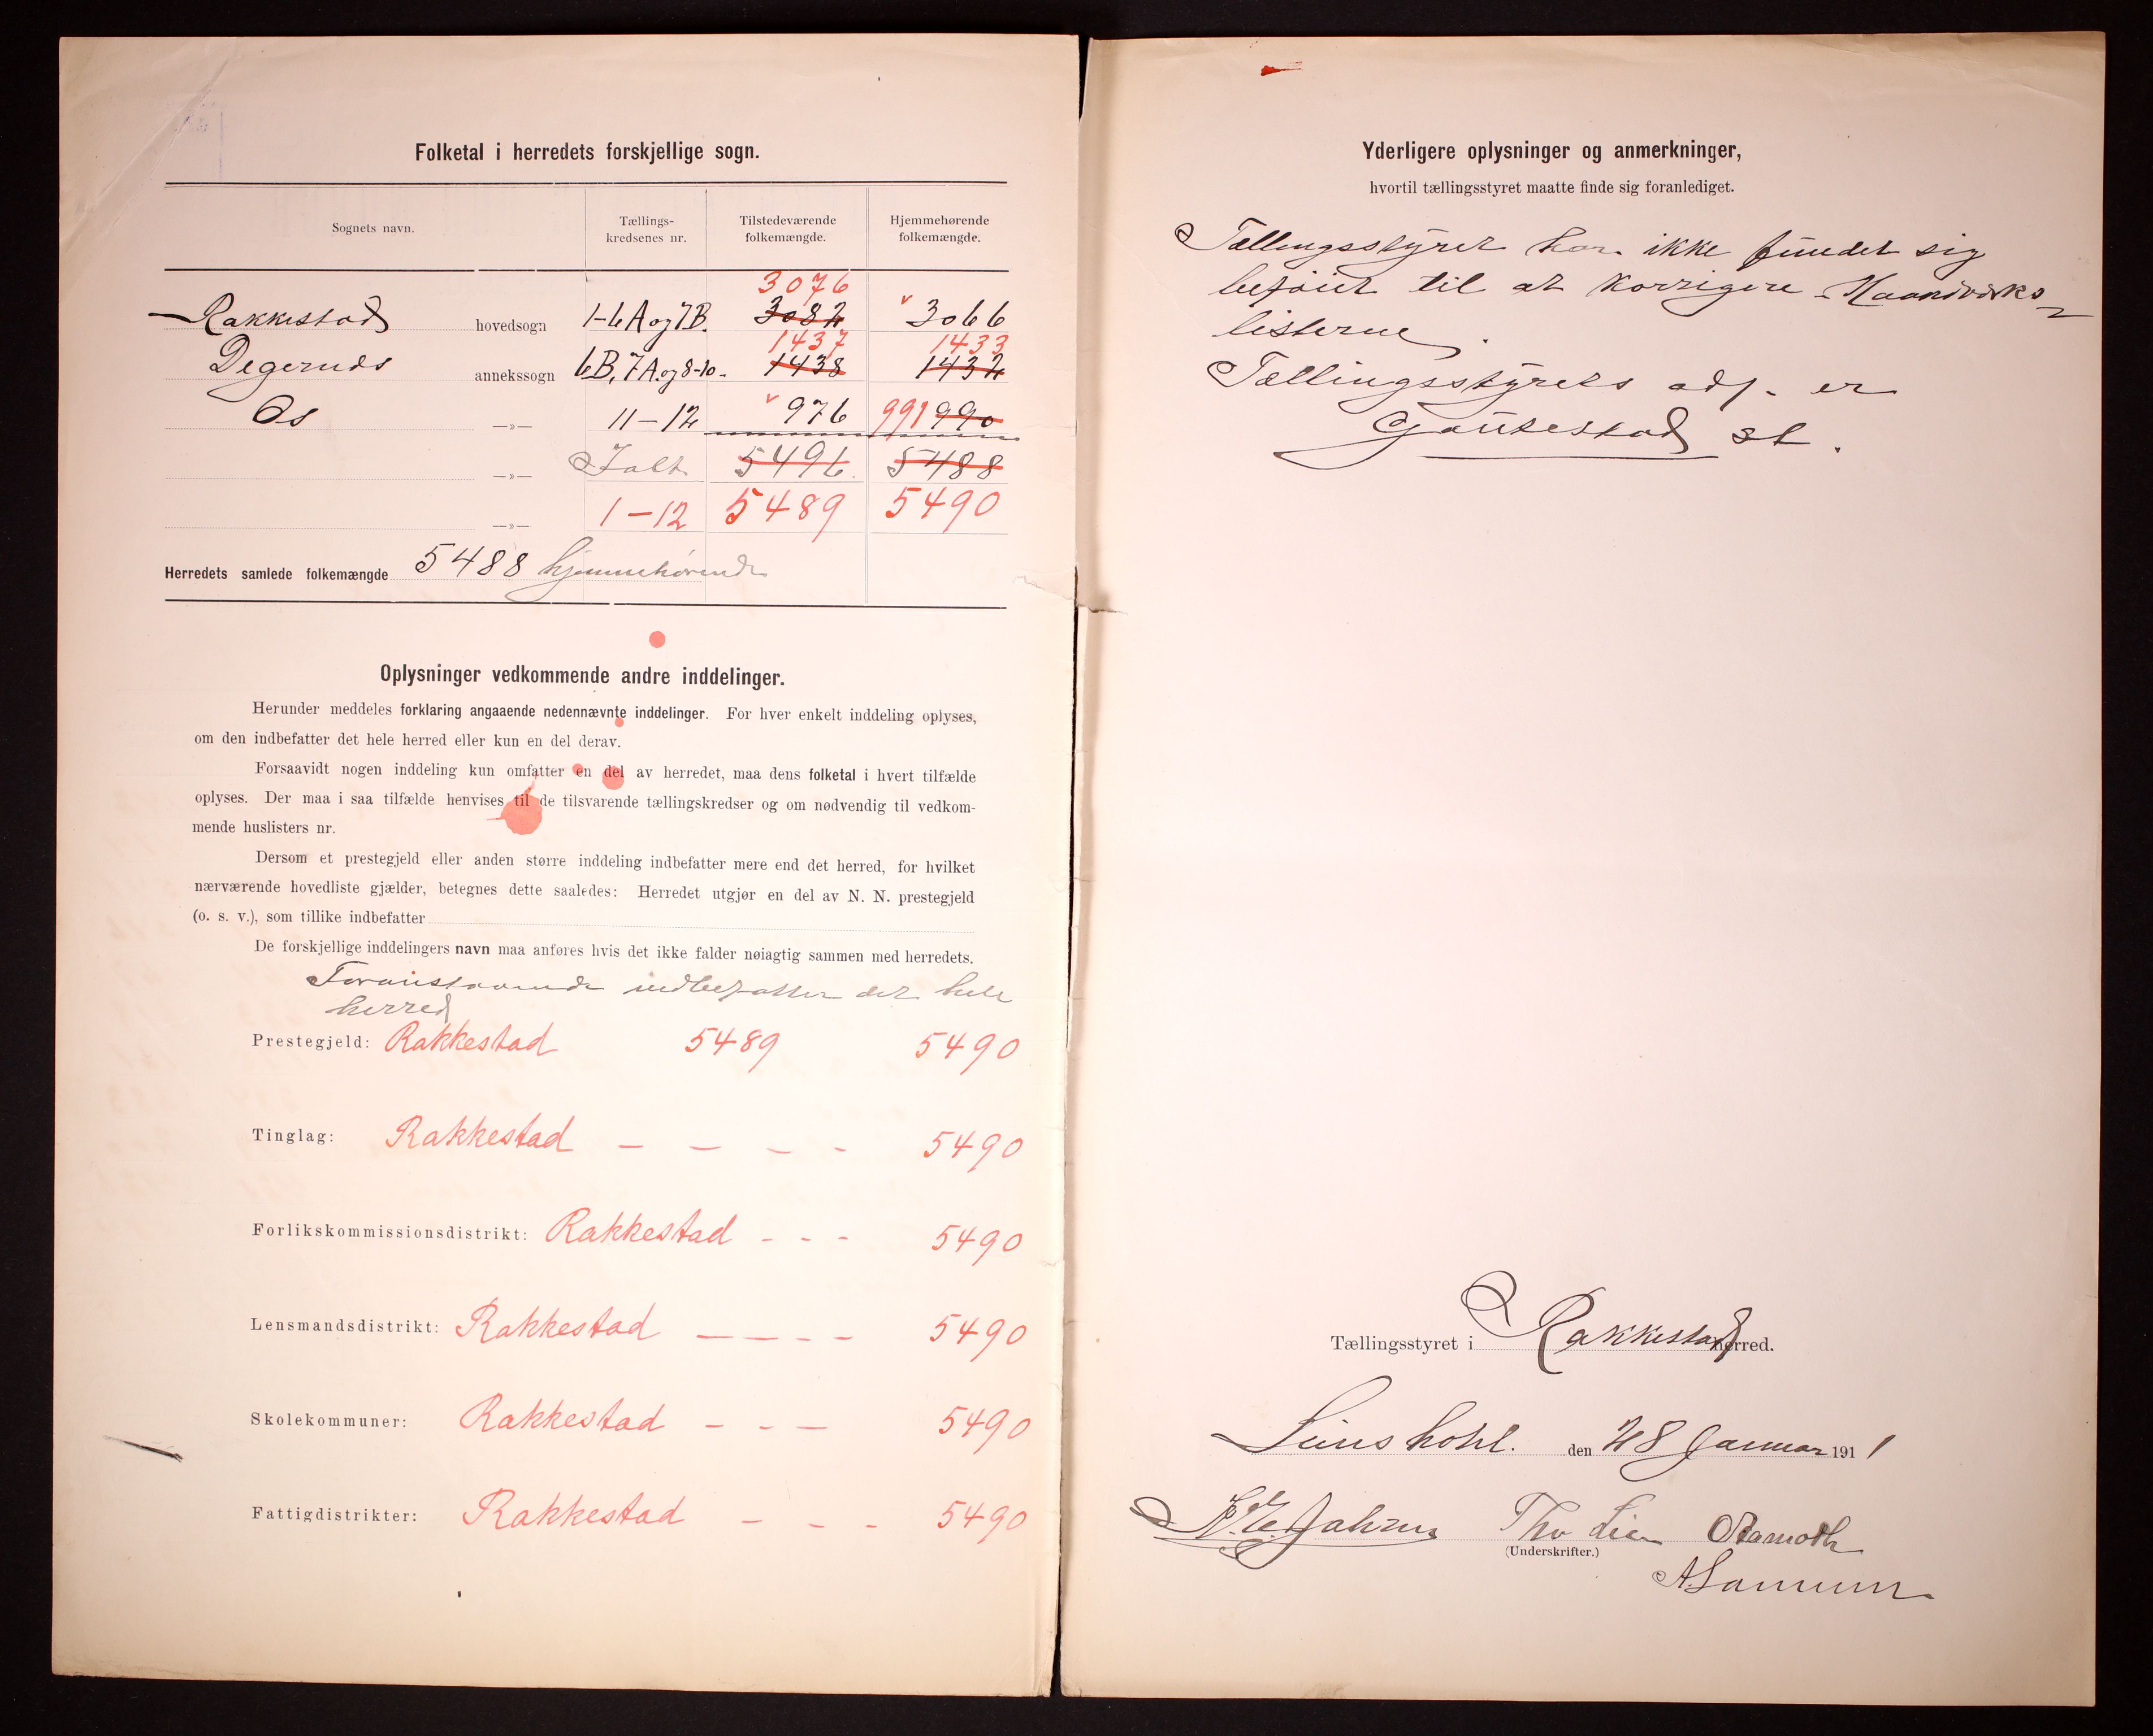 Folketal i herredets forskjellige sogn.
Sognets navn. Tællings-kredsenes nr. Tilstedeværende folkemængde. Hjemmehørende folkemængde.
3076
Rakkestad hovedsogn 1-6 A og 7 B. 3082 v 3066
1437 1433
Degernes annekssogn 6B, 7A. og 8-10. 1438 1432
Os —»— 11-12 v 976 991 990
—»— Ialt 5496. 5488
—»— 1-12 5489 5490
Herredets samlede folkemængde 5488 hjemmehørende
Oplysninger vedkommende andre inddelinger.
Herunder meddeles forklaring angaaende nedennævnte inddelinger. For hver enkelt inddeling oplyses,
om den indbefatter det hele herred eller kun en del derav.
Forsaavidt nogen inddeling kun omfatter en del av herredet, maa dens folketal i hvert tilfælde
oplyses. Der maa i saa tilfælde henvises til de tilsvarende tællingskredser og om nødvendig til vedkom-
mende huslisters nr.
Dersom et prestegjeld eller anden større inddeling indbefatter mere end det herred, for hvilket
nærværende hovedliste gjælder, betegnes dette saaledes: Herredet utgjør en del av N. N. prestegjeld
(o. s. v.), som tillike indbefatter
De forskjellige inddelingers navn maa anføres hvis det ikke falder nøiagtig sammen med herredets.
Foranstaaende indbefatter det hele
herred
Prestegjeld: Rakkestad 5489 5490
Tinglag: Rakkestad — — — - 5490
Forlikskommissionsdistrikt: Rakkestad - - - 5490
Lensmandsdistrikt: Rakkestad — — - - 5490
Skolekommuner: Rakkestad — - — 5490
Fattigdistrikter: Rakkestad — - - 5490
Yderligere oplysninger og anmerkninger,
hvortil tællingsstyret maatte finde sig foranlediget.
Tællingsstyret har ikke fundet sig
beføiet til at korrigere Haandværks-
listerne.
Tællingsstyrets adr. er
Gautestad st.
Tællingsstyret i Rakkestad herred.
den 28 Januar 1911
Tho Lie
(Underskrifter.)